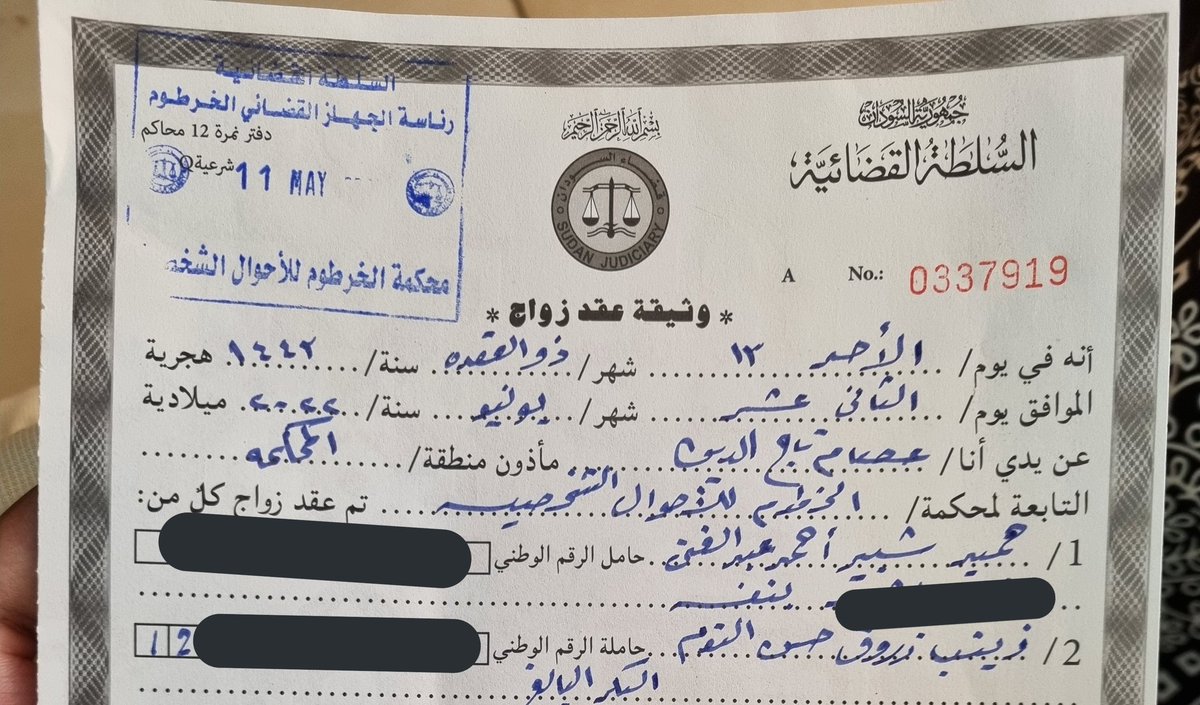 جمهورية السودان
السلطة القضائية
بسم الله الرحمن الرحيم
قضاء السودان
SUDAN JUDICIARY
السلطة القضائية
رئاسة الجهاز القضائي الخرطوم
دفتر نمرة 12 محاكم
شرعية
11 MAY
محكمة الخرطوم للأحوال الشخ
A No.: 0337919
* وثيقة عقد زواج *
أنه في يوم/ الأحد ١٣ شهر/ ذو القعده سنة/ ١٤٤٣ هجرية
الموافق يوم/ الثاني عشر شهر/ يونيو سنة/ ٢٠٢٢ ميلادية
عن يدي أنا/ عصام تاج الدين مأذون منطقة/ المحكمه
التابعة لمحكمة/ الخرطوم للأحوال الشخصيه تم عقد زواج كل من:
1/ شبير أحمد عبد الغني حامل الرقم الوطني
بنفسه
2/ زينب فاروق حسن التوم حاملة الرقم الوطني 12
البكر البالغ